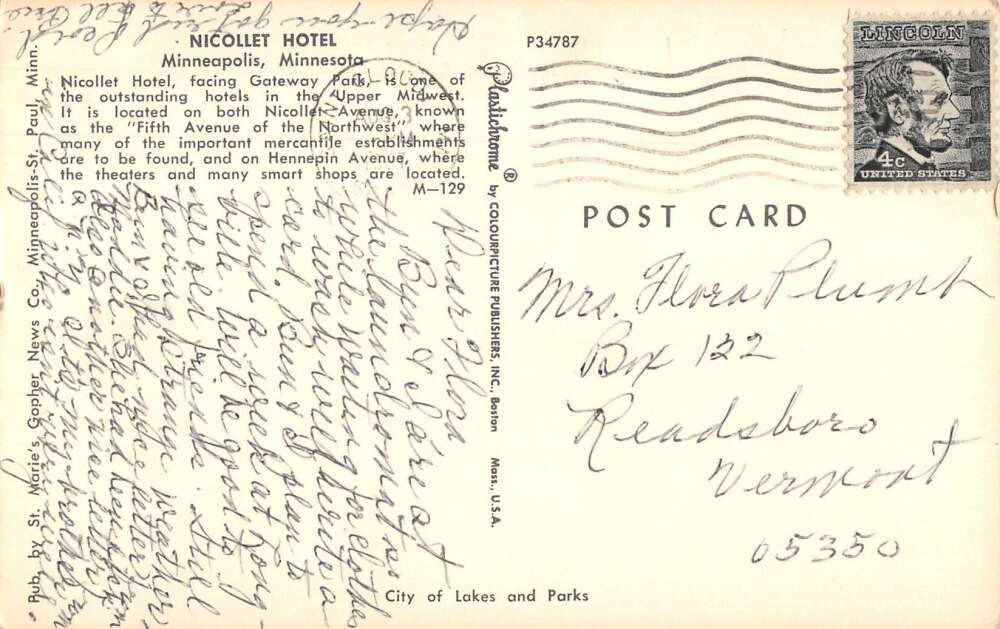 NICOLLET HOTEL
Minneapolis, Minnesota
Nicollet Hotel, facing Gateway Park, is one of
the outstanding hotels in the Upper Midwest.
It is located on both Nicollet Avenue, known
as the "Fifth Avenue of the Northwest" where
many of the important mercantile establishments
are to be found, and on Hennepin Avenue, where
the theaters and many smart shops are located.
M—129
Pub. by St. Marie's Gopher News Co., Minneapolis-St. Paul, Minn.
Plastichrome ® by COLOURPICTURE PUBLISHERS, INC., Boston Mass., U.S.A.
P34787
LINCOLN
4c
UNITED STATES
POST CARD
Mrs. Flora Plumb
Box 122
Readsboro
Vermont
05350
Dear Flora
Bun & I are at
the laundromat so
while waiting for clothes
to wash will write a
card. Bun & I plan to
spend a week at Long-
ville. Will be good to
see old friends. Still
having strange weather.
Bun & I had nice letter
also another nice letter
City of Lakes and Parks